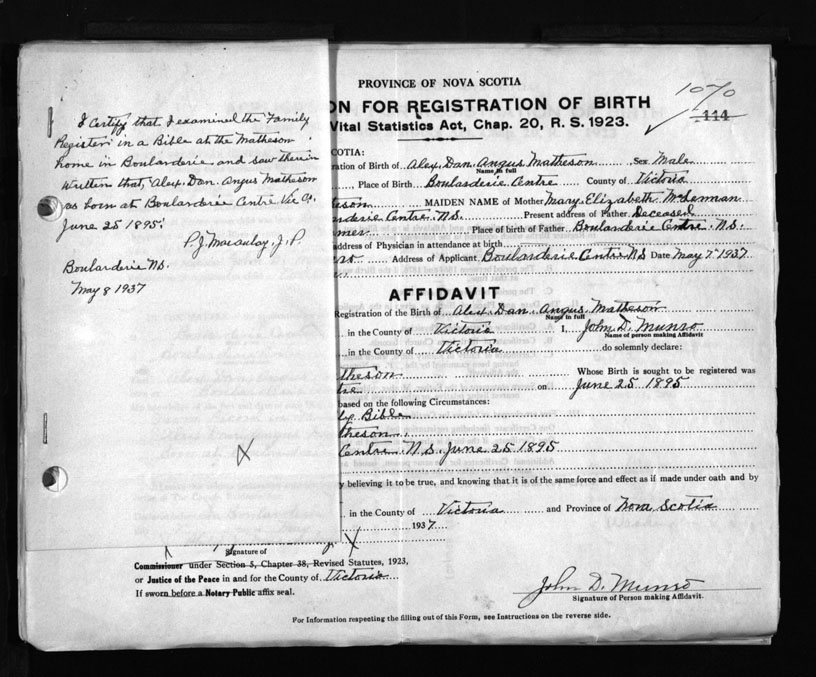 I Certify that I examined the Family
Register in a Bible at the Matheson
home in Boularderie and saw therein
written that Alex. Dan. Angus Matheson
was born at Boularderie Centre Vic Co.
June 25 1895.
P. J. Macaulay, J. P.
Boularderie N.S.
May 8 1937
PROVINCE OF NOVA SCOTIA
1070
ON FOR REGISTRATION OF BIRTH
114
Vital Statistics Act, Chap. 20, R. S. 1923.
COTIA:
ration of Birth of Alex. Dan. Angus Matheson Sex Male
Name in full
, Place of Birth Boularderie Centre County of Victoria
eson MAIDEN NAME of Mother Mary Elizabeth McLennan
nderie Centre N.S. Present address of Father Deceased
mer Place of birth of Father Boularderie Centre N.S.
address of Physician in attendance at birth
ro Address of Applicant Boularderie Centre N.S Date May 7 1937
AFFIDAVIT
Registration of the Birth of Alex. Dan. Angus Matheson
Name in full
in the County of Victoria I, John D. Munro
Name of person making Affidavit
in the County of Victoria do solemnly declare:
theson Whose Birth is sought to be registered was
tre on June 25 1895
based on the following Circumstances:
ly Bible
theson
Centre N.S. June 25 1895
y believing it to be true, and knowing that it is of the same force and effect as if made under oath and by
in the County of Victoria and Province of Nova Scotia
1937
X
Signature of
Commissioner under Section 5, Chapter 38, Revised Statutes, 1923,
or Justice of the Peace in and for the County of Victoria
If sworn before a Notary Public affix seal.
John D. Munro
Signature of Person making Affidavit.
For Information respecting the filling out of this Form, see Instructions on the reverse side.